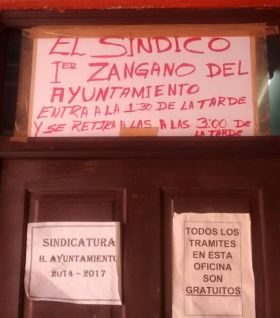 EL SINDICO
1ER ZANGANO DEL
AYUNTAMIENTO
ENTRA A LA 1:30 DE LA TARDE
Y SE RETIRA LAS A LAS 3:00 DE
LA TARDE
SINDICATURA
H. AYUNTAMIENTO
2014 - 2017
TODOS LOS
TRAMITES
EN ESTA
OFICINA
SON
GRATUITOS